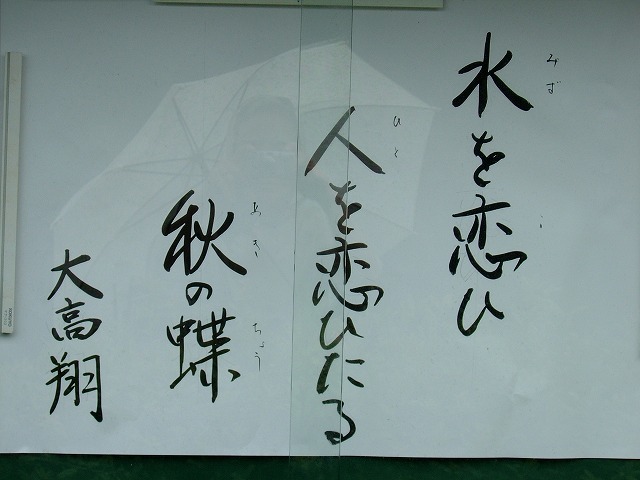 水を恋ひ
みず
人を恋ひたる
ひと
秋の蝶
あき
ちょう
大高翔